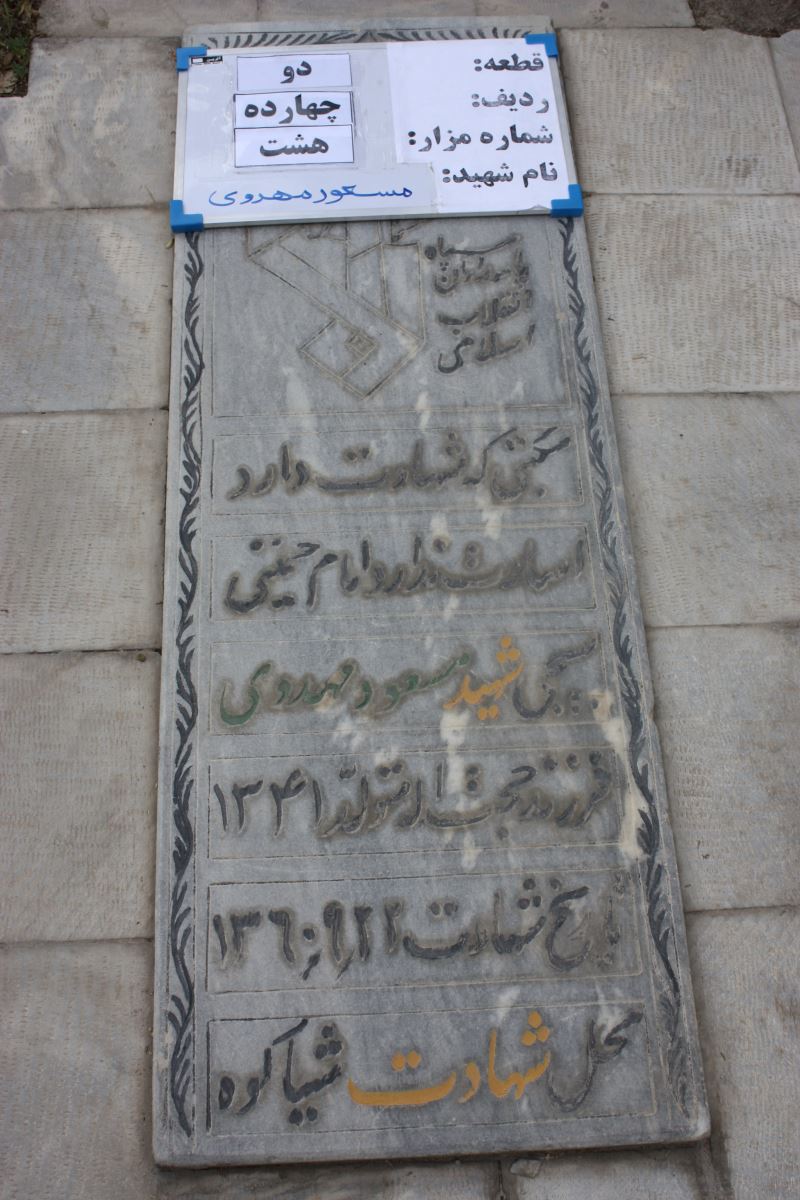 قطعه: دو
ردیف: چهارده
شماره مزار: هشت
نام شهید: مسعود مهدوی
سپاه
پاسداران
انقلاب
اسلامی
مکتبی که شهادت دارد
اسارت ندارد امام خمینی
بسیجی شهید مسعود مهدوی
فرزند حجت اله تولّد ۱۳۴۱
تاریخ شهادت ۱۳۶۰٫۹٫۲۲
محل شهادت شیاکوه